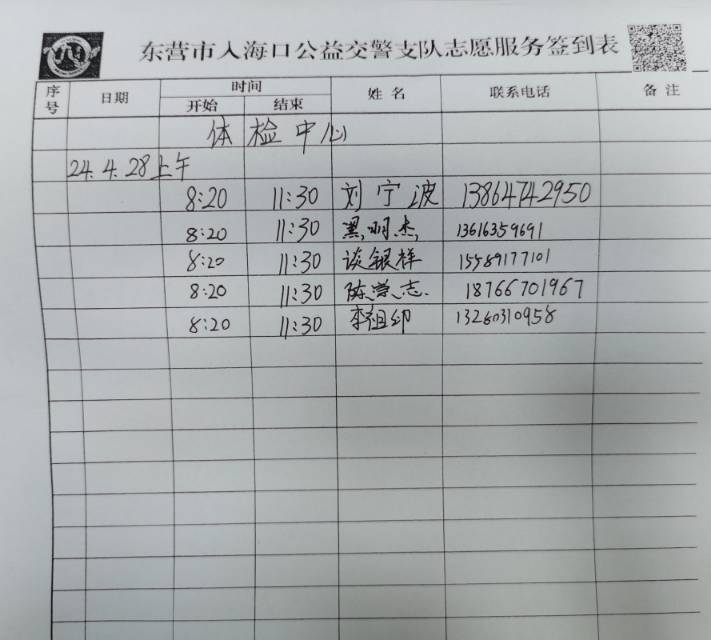 东营市入海口公益交警支队志愿服务签到表
序号 日期 时间 姓名 联系电话 备注
开始 结束
体检中心
24.4.28上午
8:20 11:30 刘宁波 13864742950
8:20 11:30 黑明杰 13616359691
8:20 11:30 谈银祥 15589177101
8:20 11:30 陈学志 18766701967
8:20 11:30 李祖印 13260310958